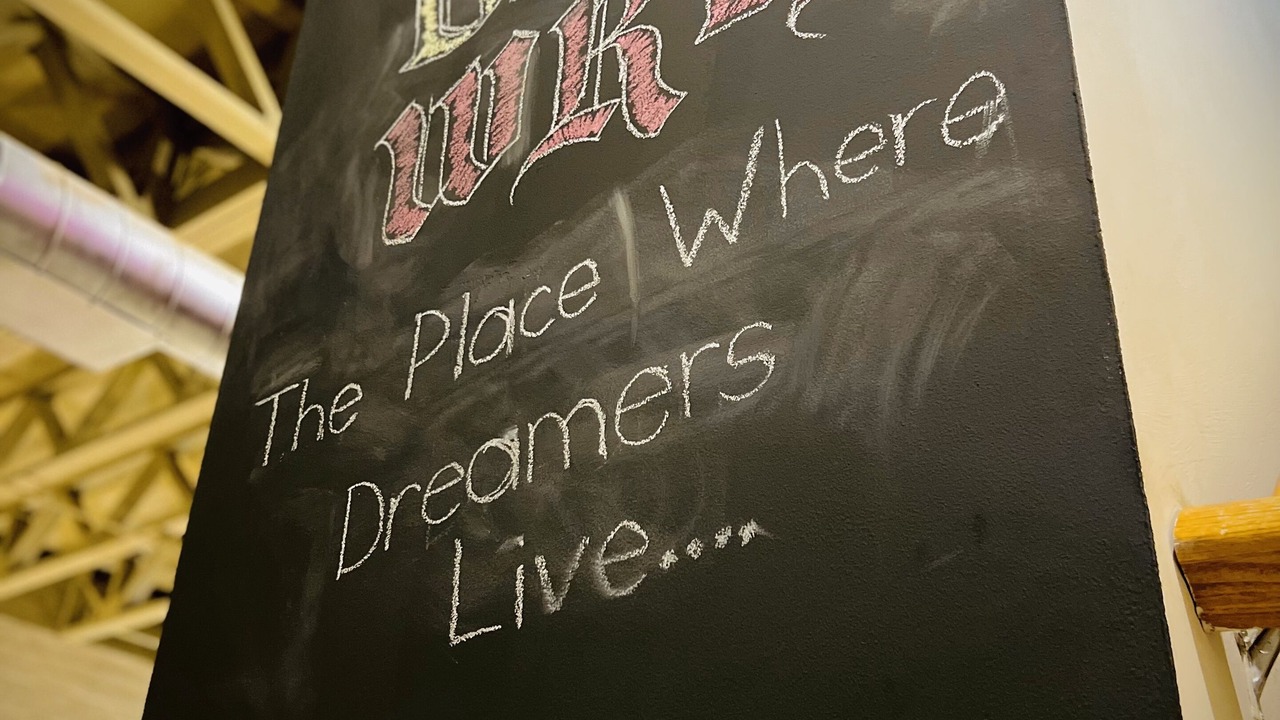 The Place Where
Dreamers
Live....